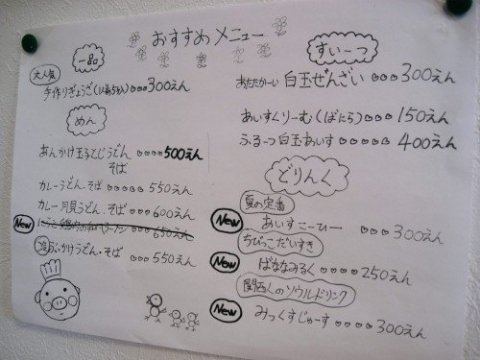 おすすめメニュー
一品
大人気
手作りぎょうざ 300えん
めん
あんかけ玉子とじうどん 500えん
そば
カレーうどん・そば 550えん
カレー月見うどん・そば 600えん
New 650えん
冷ぶっかけうどん・そば 550えん
すいーつ
あたたかーい 白玉ぜんざい 300えん
あいすくりーむ(ばにら) 150えん
ふるーつ白玉あいす 400えん
どりんく
夏の定番
New あいすこーひー 300えん
ちびっこだいすき
New ばななみるく 250えん
関西人のソウルドリンク
New みっくすじゅーす 300えん